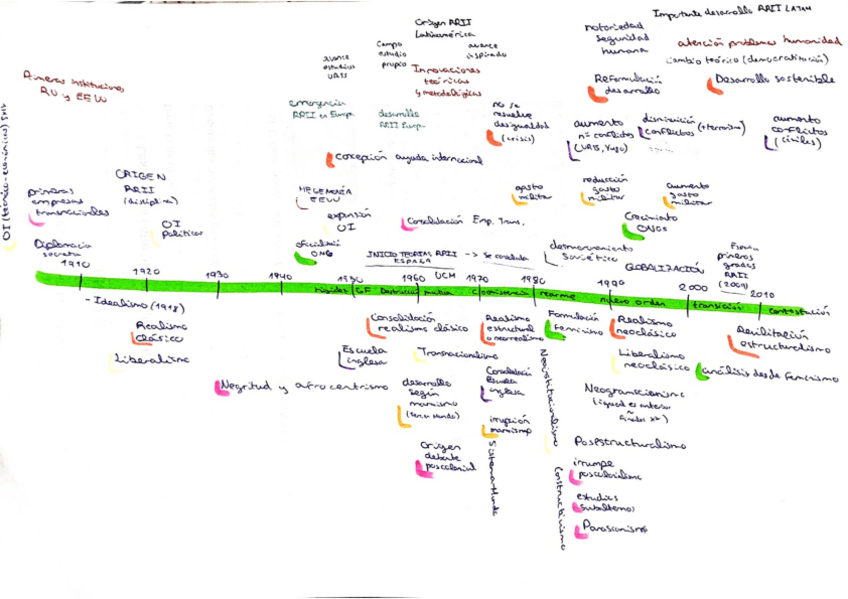 Origen RRII
Latinoamérica
Importante desarrollo RRII LATAM
notoriedad
seguridad
humana
atención problemas humanidad
cambio teórico (democratización)
avance
estudios
URSS
Campo
estudio
propio
avance
Innovaciones
teóricas
y metodológicas
Reformulación
desarrollo
Desarrollo sostenible
Primeras instituciones
RU y EEUU
emergencia
RRII en Europa
desarrollo
RRII Europa
no se
resuelve
desigualdad
(crisis)
aumento
nº conflictos
(URSS, Yugo)
disminución
conflictos (+terrorismo)
aumento
conflictos
(civiles)
OI (técnico-económicas)
Concepción ayuda internacional
ORIGEN
RRII
(disciplina)
primeras
empresas
transnacionales
OI
Políticas
HEGEMONÍA
EEUU
expansión
OI
Consolidación Emp. Trans.
gasto
militar
reducción
gasto
militar
aumento
gasto
militar
Crecimiento
ONGs
Diplomacia
secreta
oficialidad
ONG
INICIO TEORÍAS RRII -> Se consolida
ESPAÑA
UCM
desmoronamiento
Soviético
GLOBALIZACIÓN
primeros
grados
RRII
(2009)
1910
1920
1930
1940
1950
1960
1970
1980
1990
2000
2010
GF
Destrucción mutua
Coexistencia
rearme
nuevo orden
transición
contestación
- Idealismo (1918)
Realismo
Clásico
Liberalismo
Consolidación
realismo clásico
Realismo
estructural
o neorrealismo
Formulación
feminismo
Realismo
neoclásico
Rehabilitación
estructuralismo
Escuela
inglesa
Transnacionalismo
Liberalismo
neoclásico
análisis desde feminismo
Negritud y afrocentrismo
desarrollo
según
marxismo
(Tercer Mundo)
Consolidación
Escuela
inglesa
irrupción
marxismo
Neoinstitucionalismo
Neogramscianismo
Origen
debate
poscolonial
Sistema-Mundo
Constructivismo
Posestructuralismo
irrumpe
poscolonialismo
estudios
subalternos